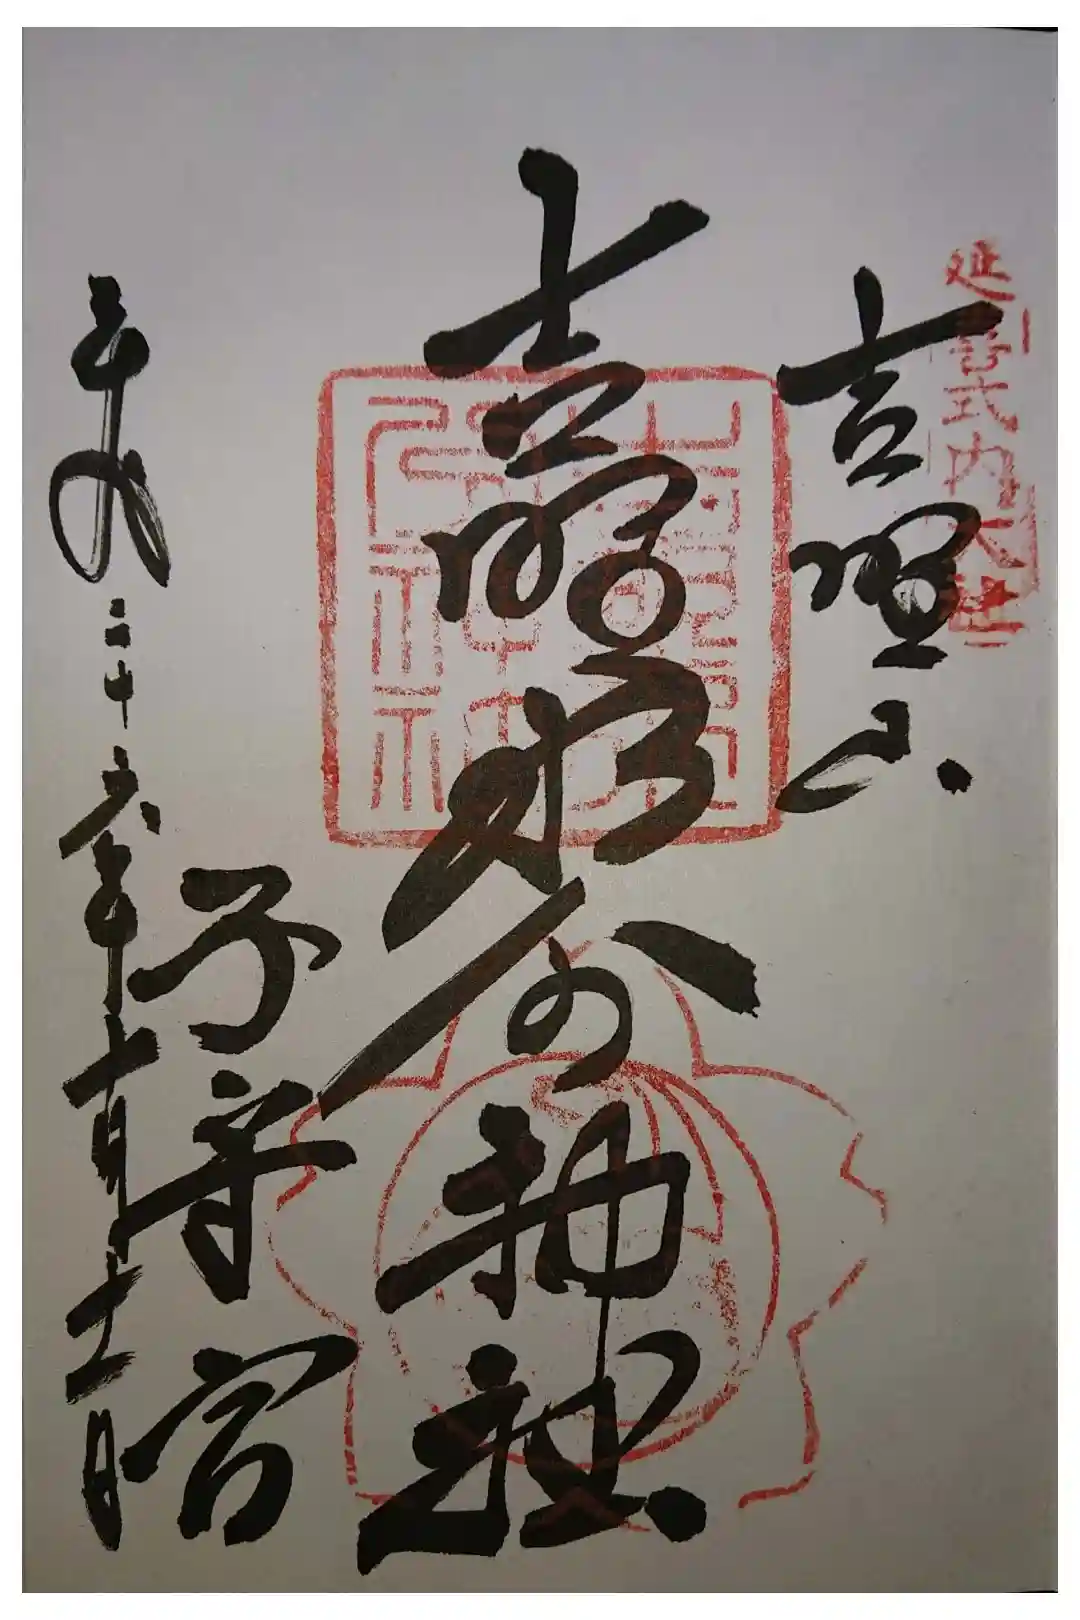 延喜式内大社
吉野山
吉野水分神社
子守宮
平成二十六年十月十一日